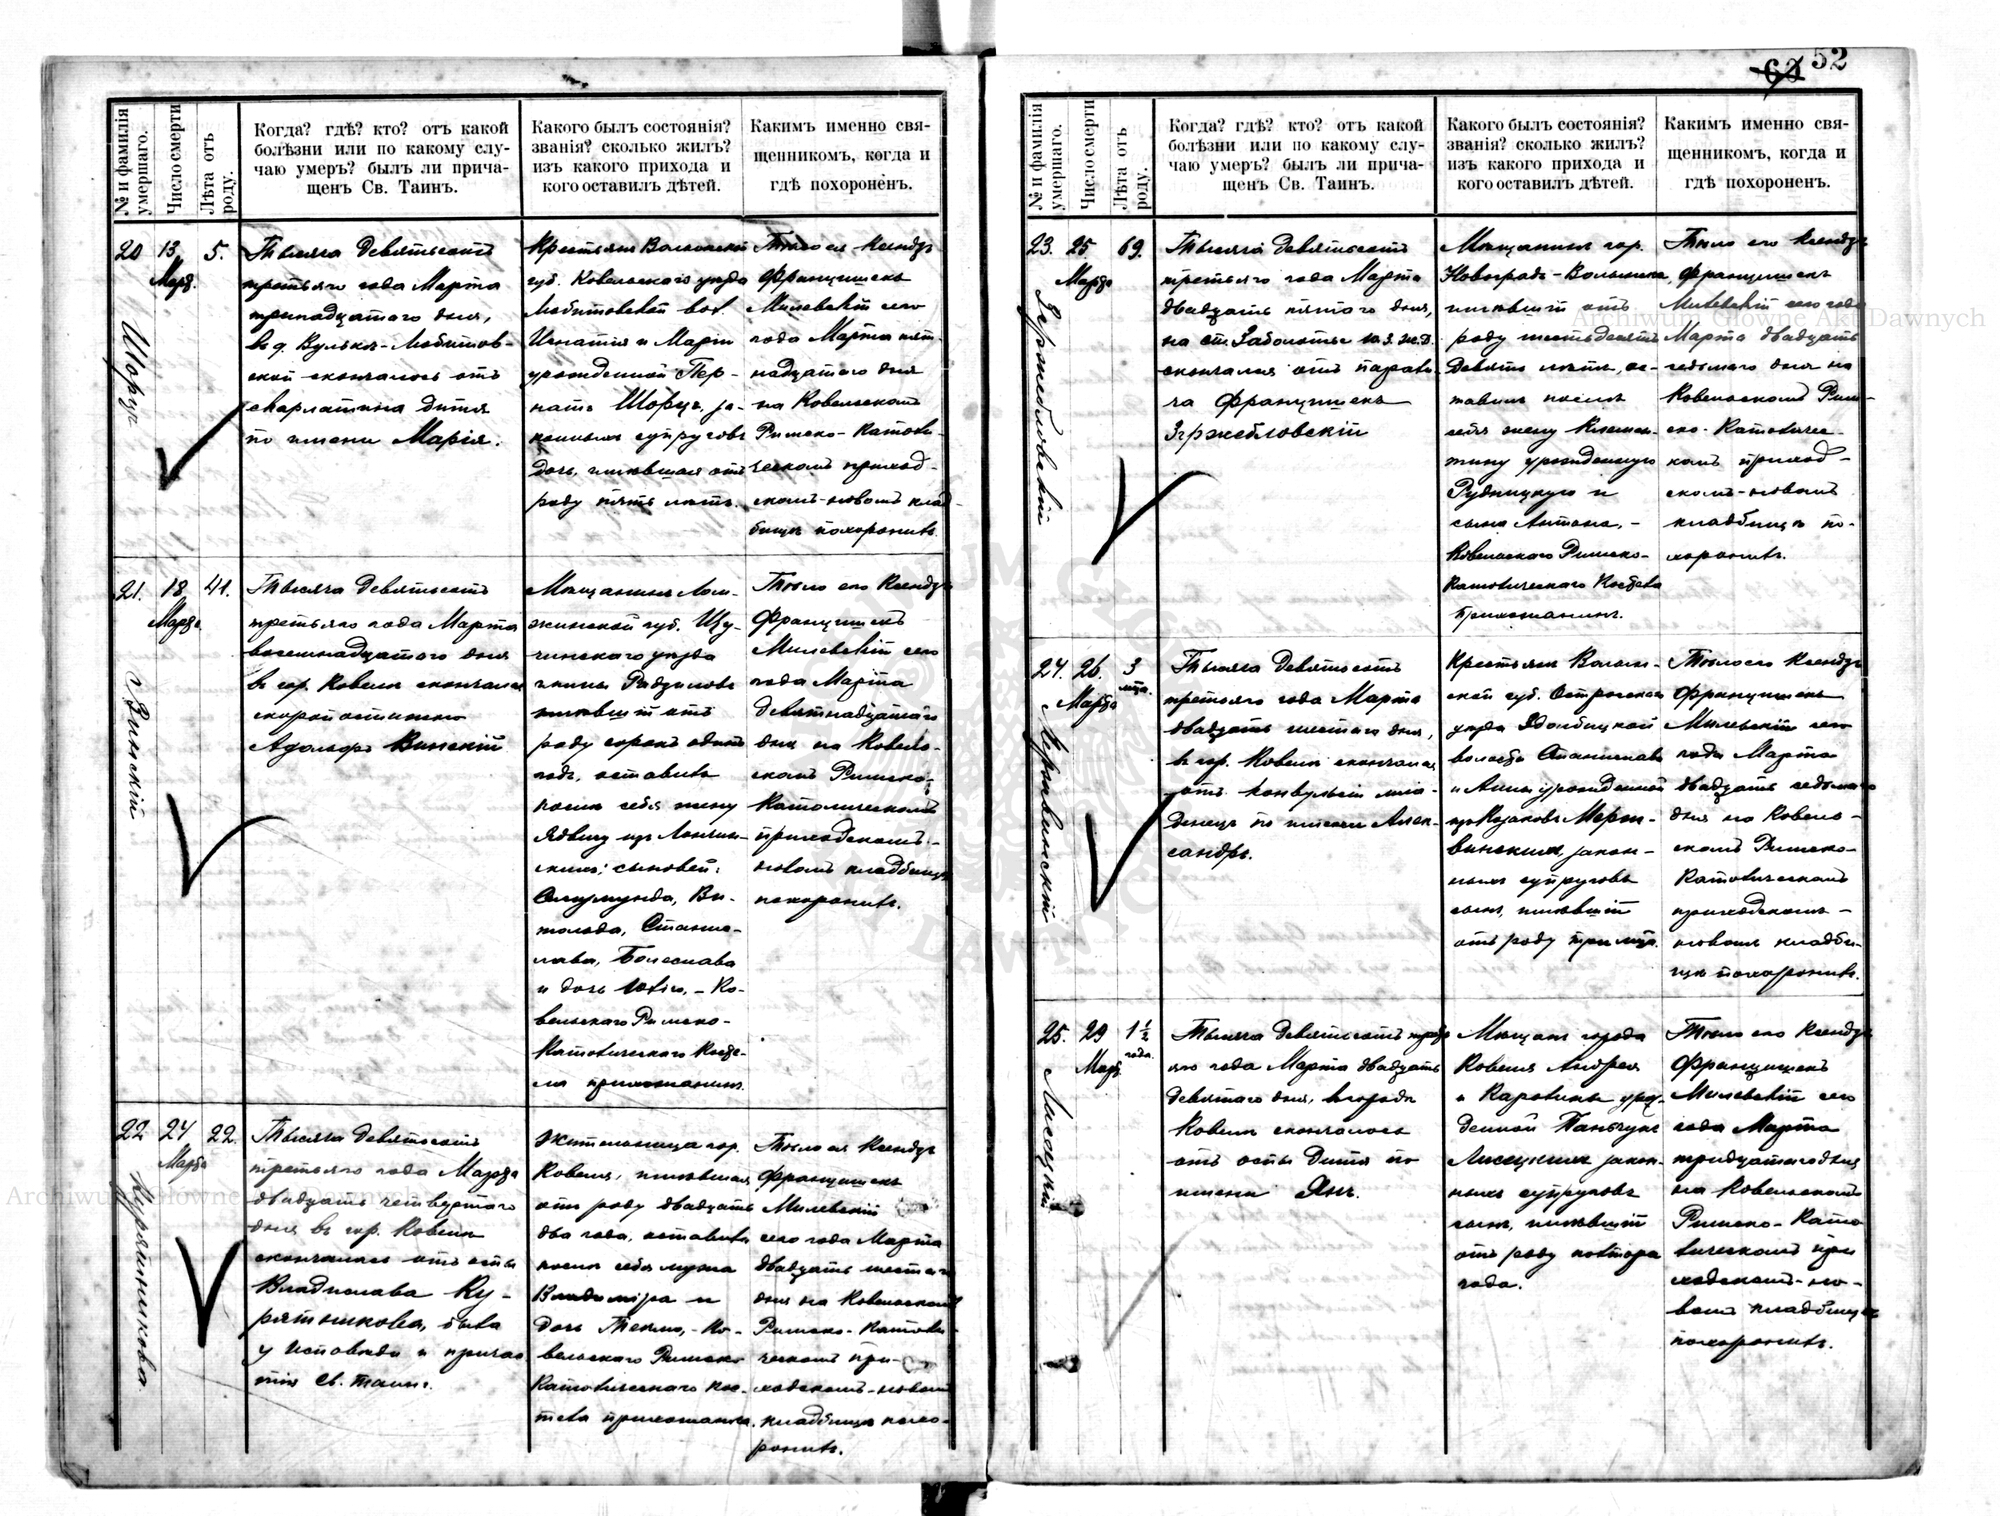 52
№ и фамилія умершаго.
Число смерти
Лѣта отъ роду.
Когда? гдѣ? кто? отъ какой
болѣзни или по какому слу-
чаю умеръ? былъ ли прича-
щенъ Св. Таинъ.
Какого былъ состоянія?
званія? сколько жилъ?
изъ какого прихода и
кого оставилъ дѣтей.
Какимъ именно свя-
щенникомъ, когда и
гдѣ похороненъ.
20
13 Марта
5.
Шоруцъ
Тысяча девятьсотъ
третьяго года Марта
тринадцатаго дня,
въ д. Вулькѣ-Любитов-
ской скончалось отъ
скарлатина дитя
по имени Марія.
Крестьянъ Волынской
губ. Ковельскаго уѣзда
Любитовской вол.
Игнатія и Маріи
урожденной Пер-
натъ Шоруцъ, за-
конныхъ супруговъ
дочь, имѣвшая отъ
роду пять лѣтъ.
Тѣло ея Ксендзъ
Францишекъ
Милевскій сего
года Марта пят-
надцатого дня
на Ковельскомъ
Римско-Католи-
ческомъ приход-
скомъ-новомъ клад-
бищѣ похоронилъ.
21.
18 Марта
41.
Винскій
Тысяча девятьсотъ
третьяго года Марта
восемнадцатого дня
въ гор. Ковелѣ скончался
скоропостижно
Адольфъ Винскій
Мѣщанинъ Лом-
жинской губ. Щу-
чинскаго уѣзда
гмины Радзиловъ
имѣвшій отъ
роду сорокъ одинъ
годъ, оставилъ
послѣ себя жену
Ядвигу изъ
сыновей:
Сигизмунда, Ви-
тольда, Станис-
лава, Болеслава
и дочь -Ко-
вельскаго Римско-
Католическаго Косте-
ла прихожанинъ.
Тѣло его Ксендзъ
Францишекъ
Милевскій сего
года Марта
девятнадцатаго
дня на Ковель-
скомъ Римско-
Католическомъ
приходскомъ-
новомъ кладбищѣ
похоронилъ.
22
24 Марта
22.
Курятникова.
Тысяча девятьсотъ
третьяго года Марта
двадцать четвертаго
дня въ гор. Ковелѣ
скончалась отъ оспы
Владислава Ку-
рятникова, была
у исповѣди и причас-
тія Св. Таинъ.
Жительница гор.
Ковеля, имѣвшая
отъ роду двадцать
два года, оставила
послѣ себя мужа
Владиміра и
дочь Теклю,-Ко-
вельскаго Римско-
Католическаго Кос-
тела прихожанка.
Тѣло ея Ксендзъ
Францишекъ
Милевскій
сего года Марта
двадцать шестаго
дня на Ковельскомъ
Римско-Католи-
ческомъ при-
ходскомъ-новомъ
кладбищѣ похо-
ронилъ.
№ и фамилія умершаго.
Число смерти
Лѣта отъ роду.
Когда? гдѣ? кто? отъ какой
болѣзни или по какому слу-
чаю умеръ? былъ ли прича-
щенъ Св. Таинъ.
Какого былъ состоянія?
званія? сколько жилъ?
изъ какого прихода и
кого оставилъ дѣтей.
Какимъ именно свя-
щенникомъ, когда и
гдѣ похороненъ.
23.
25. Марта
69.
Згржебловскій
Тысяча девятьсотъ
третьяго года Марта
двадцать пятаго дня,
на ст. Заболотье Ю.З.Ж.Д.
скончался отъ парали-
ча Францишекъ
Згржебловскій
Мѣщанинъ гор.
Новоградъ-Волынска,
имѣвшій отъ
роду шестьдесятъ
девять лѣтъ, ос-
тавилъ послѣ
себя жену Клемен-
тину урожденную
Рудницкую и
сына Антона,-
Ковельскаго Римско-
Католическаго Костела
прихожанинъ.
Тѣло его Ксендзъ
Францишекъ
Милевскій сего года
Марта двадцать
седьмаго дня на
Ковельскомъ Рим-
ско-Католичес-
комъ приход-
скомъ-новомъ
кладбищѣ по-
хоронилъ.
24.
26. Марта
3 мѣс.
Мержвинскій
Тысяча девятьсотъ
третьяго года Марта
двадцать шестаго дня,
въ гор. Ковелѣ скончался
отъ конвульсій мла-
денецъ по имени Алек-
сандръ.
Крестьянъ Волын-
ской губ. Острожскаго
уѣзда Здолбицкой
волости Станислава
и Анны урожденной
изъ Козаковъ Мерж-
винскихъ, закон-
ныхъ супруговъ
сынъ, имѣвшій
отъ роду три мѣс.
Тѣло его Ксендзъ
Францишекъ
Милевскій сего
года Марта
двадцать седьмаго
дня на Ковель-
скомъ Римско-
Католическомъ
приходскомъ-
новомъ кладби-
щѣ похоронилъ.
25.
29 Марта
1½ года.
Лисецкій
Тысяча девятьсотъ треть-
яго года Марта двадцать
девятаго дня, въ городѣ
Ковелѣ скончалось
отъ оспы дитя по
имени Янъ.
Мѣщанъ города
Ковеля Андрея
и Каролины урож-
денной Паньчукъ
Лисецкихъ закон-
ныхъ супруговъ
сынъ, имѣвшій
отъ роду полтора
года.
Тѣло его Ксендзъ
Францишекъ
Милевскій сего
года Марта
тридцатаго дня
на Ковельскомъ
Римско-Като-
лическомъ при-
ходскомъ-но-
вомъ кладбищѣ
похоронилъ.
Archiwum Główne Akt Dawnych
Archiwum Główne Akt Dawnych